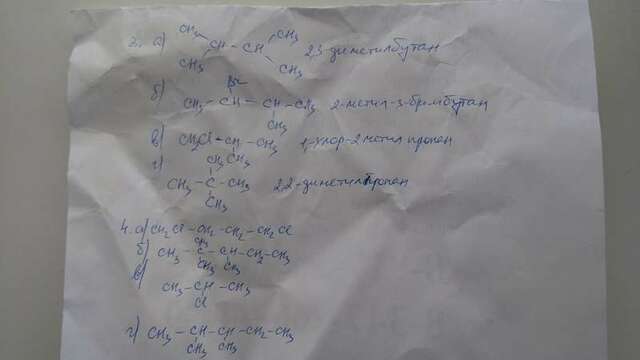 3. а) CH₃ CH₃
CH – CH 2,3-диметилбутан
CH₃ CH₃
Br
б) CH₃ – CH – CH – CH₃ 2-метил-3-бромбутан
CH₃
в) CH₂Cl – CH – CH₃ 1-хлор-2 метил пропан
CH₃
г) CH₃
CH₃ – C – CH₃ 2,2-диметилпропан
CH₃
4. а) CH₂Cl – CH₂ – CH₂ – CH₂Cl
CH₃
б) CH₃ – C – CH – CH₂ – CH₃
CH₃ CH₃
в) CH₃ – CH – CH₃
Cl
г) CH₃ – CH – CH – CH₂ – CH₃
CH₃ CH₃